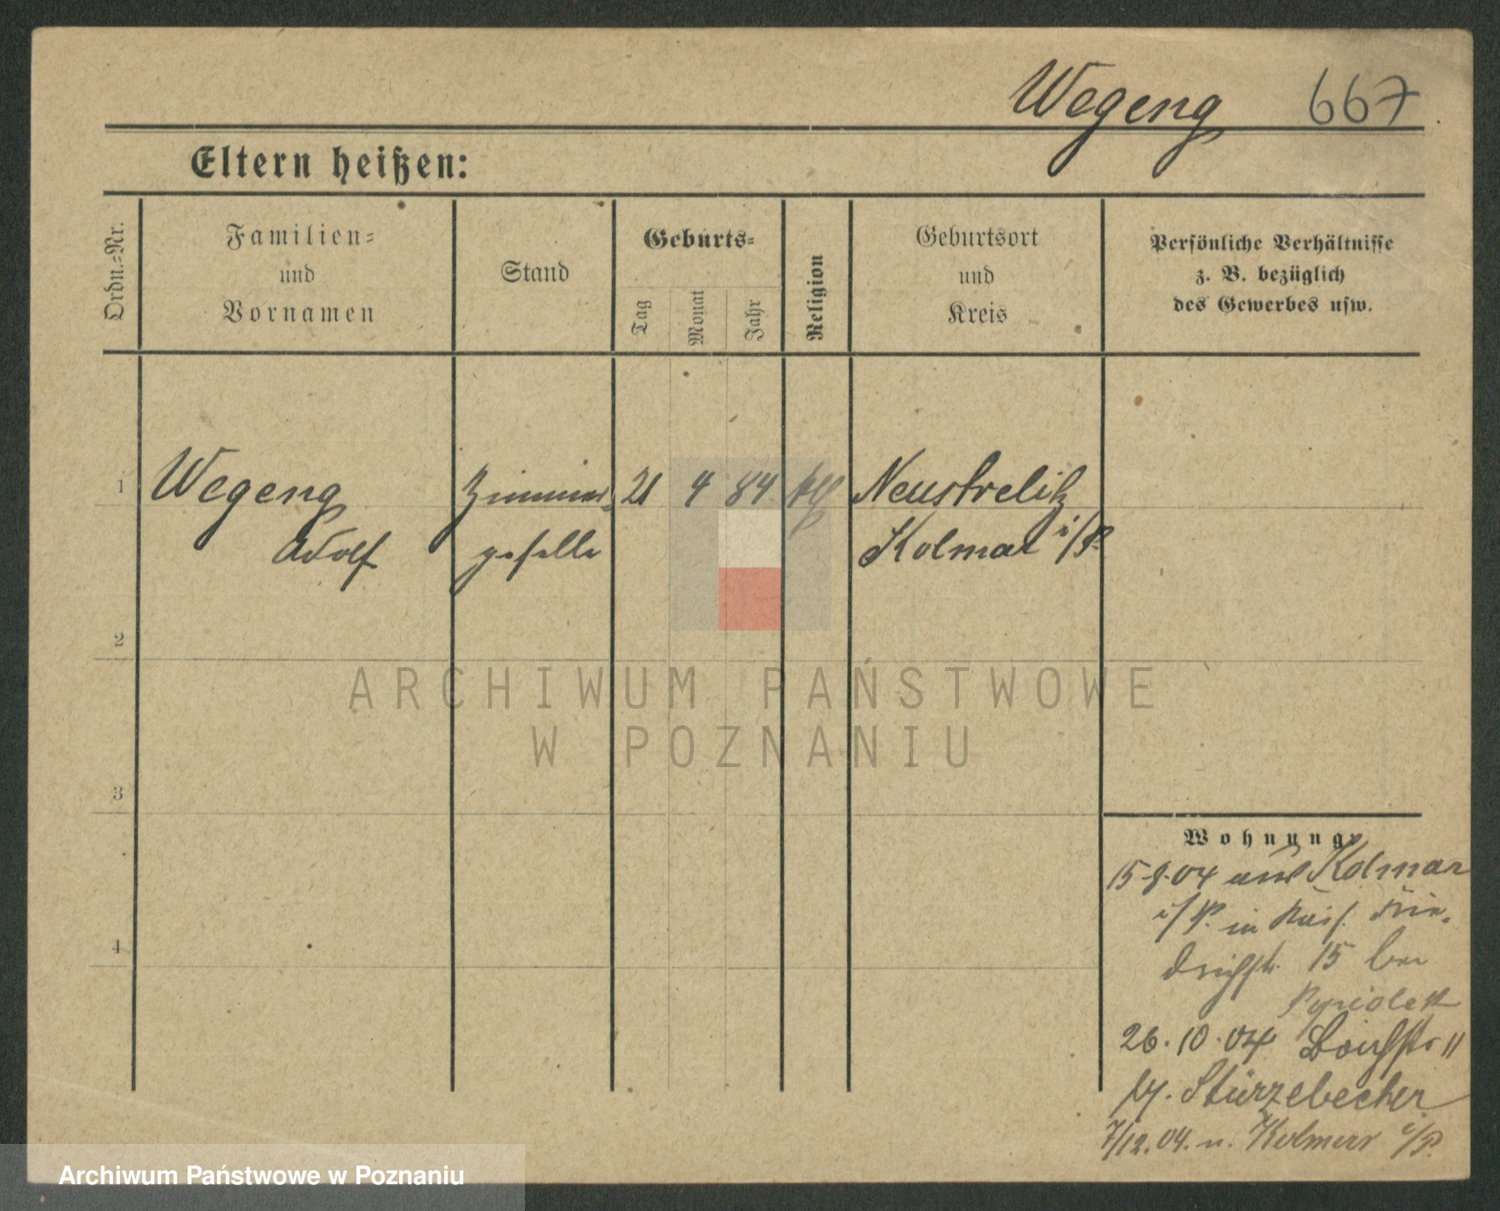 Wegeng 667
Eltern heißen:
Ordn.-Nr.
Familien-
und
Vornamen
Stand
Geburts-
Tag
Monat
Jahr
Religion
Geburtsort
und
Kreis
Persönliche Verhältnisse
z. B. bezüglich
des Gewerbes usw.
1 Wegeng Zimmer- 21 4 84 Neustrelitz
Adolf geselle Kolmar i/P.
2
3
4
Wohnung:
15.9.04 aus Kolmar
i/P. in Kais. Frie-
drichstr. 15 bei
26.10.04 11
Stürzebecher
7/12.04. n. Kolmar i/P.
ARCHIWUM PAŃSTWOWE
W POZNANIU
Archiwum Państwowe w Poznaniu